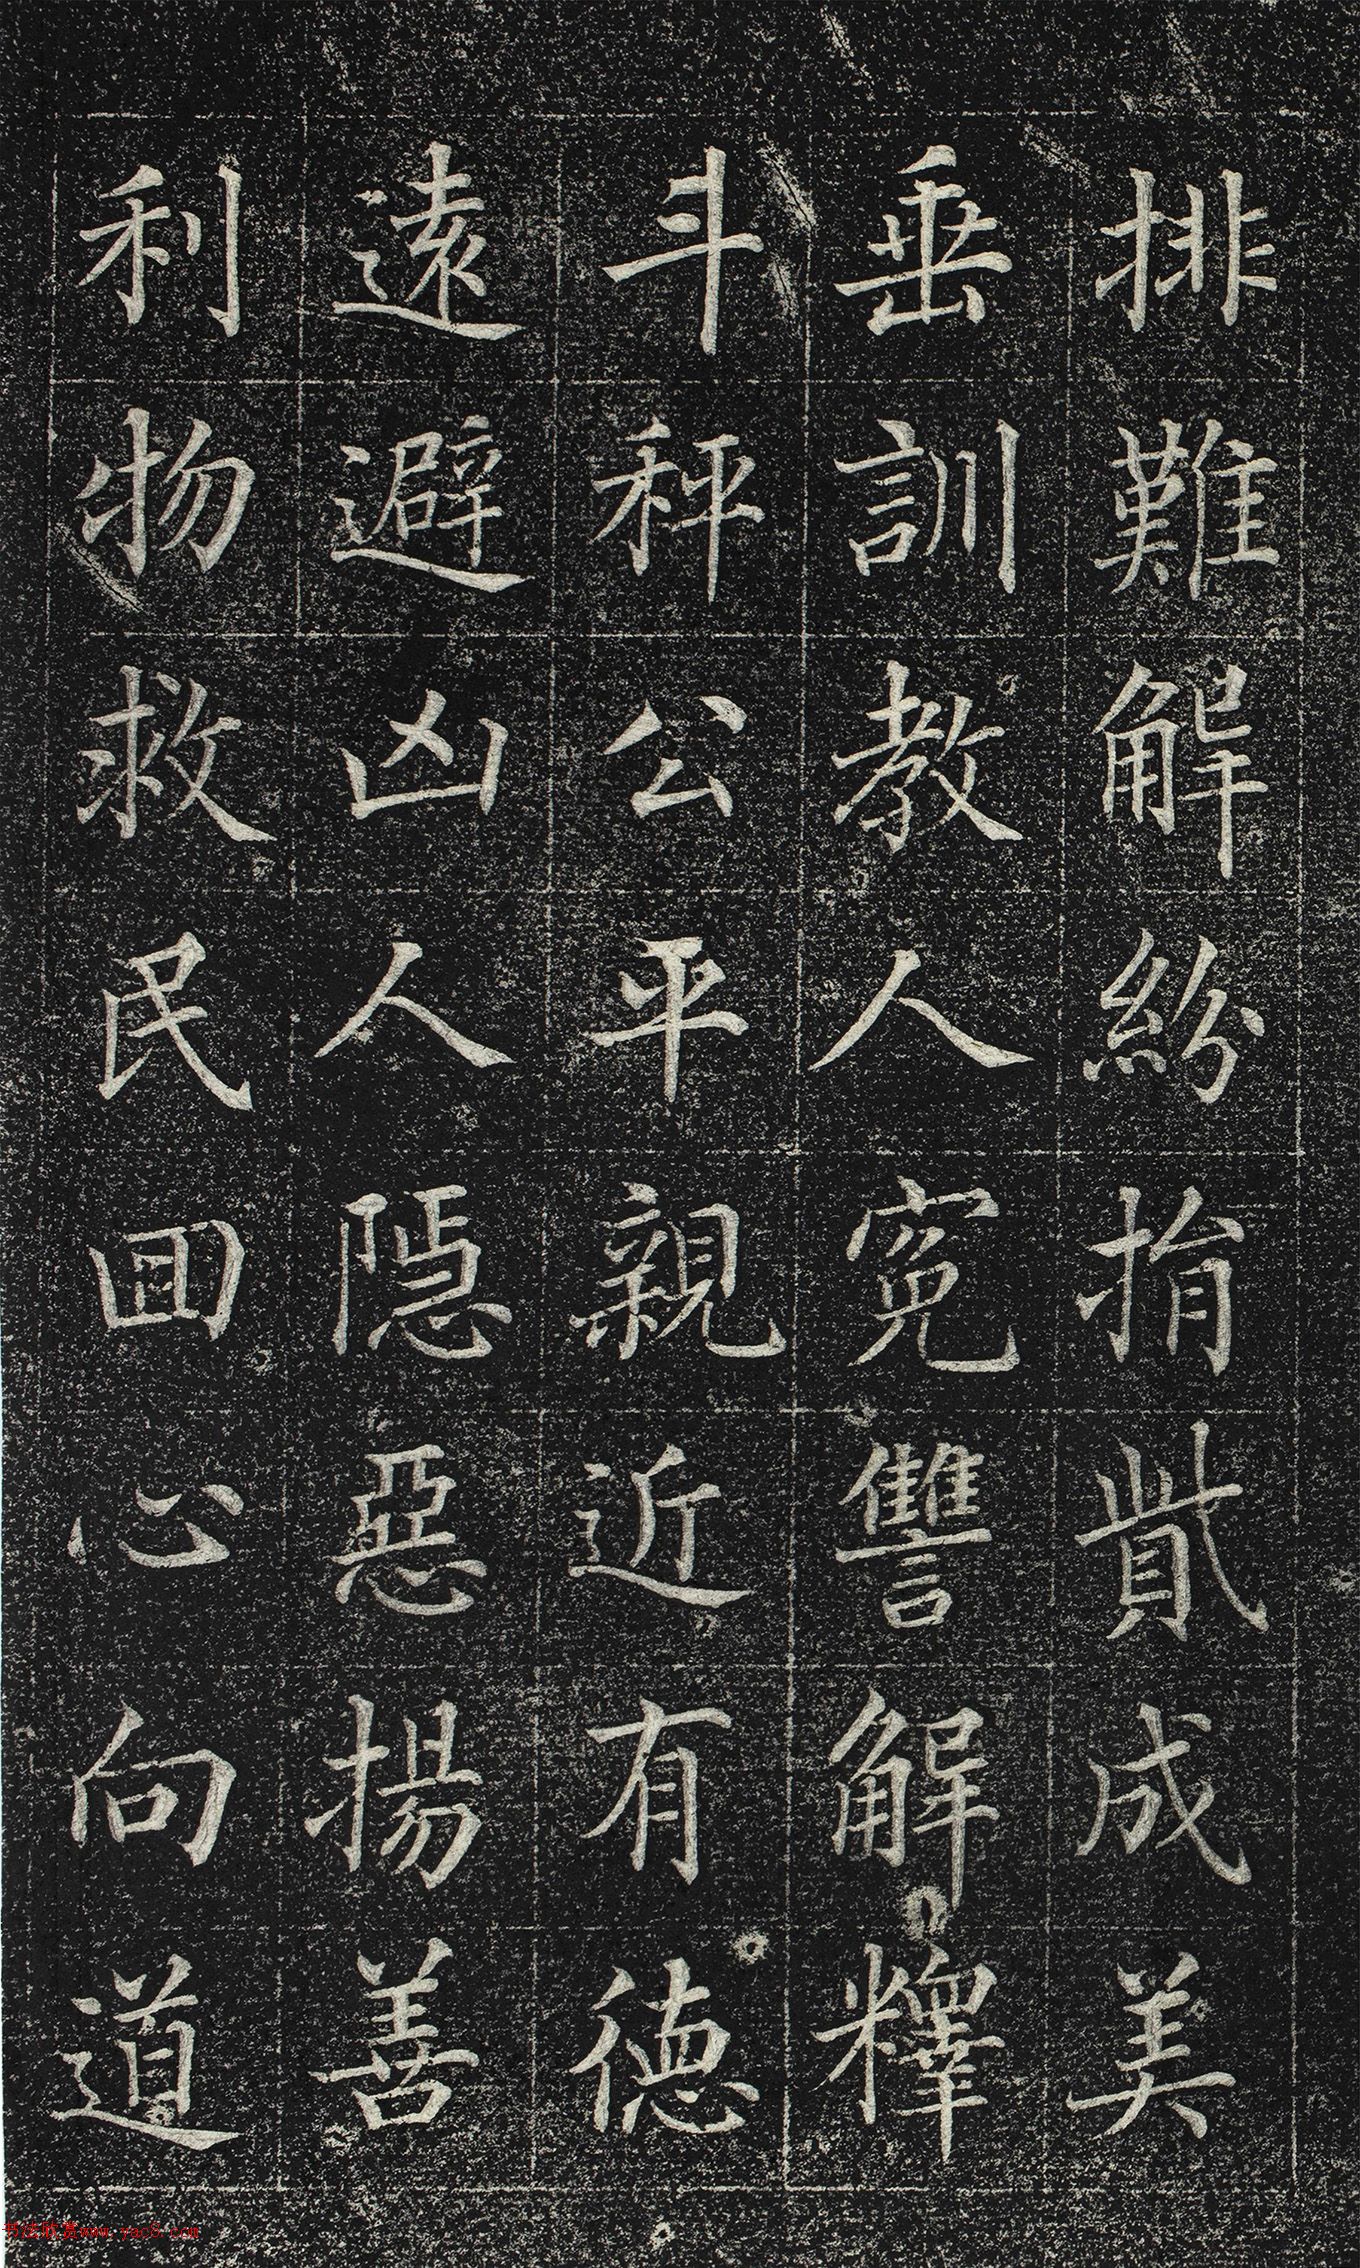 排難解紛捐貲成美
垂訓教人冤讐解釋
斗秤公平親近有德
遠避凶人隱惡揚善
利物救民回心向道
书法欣赏www.yac8.com